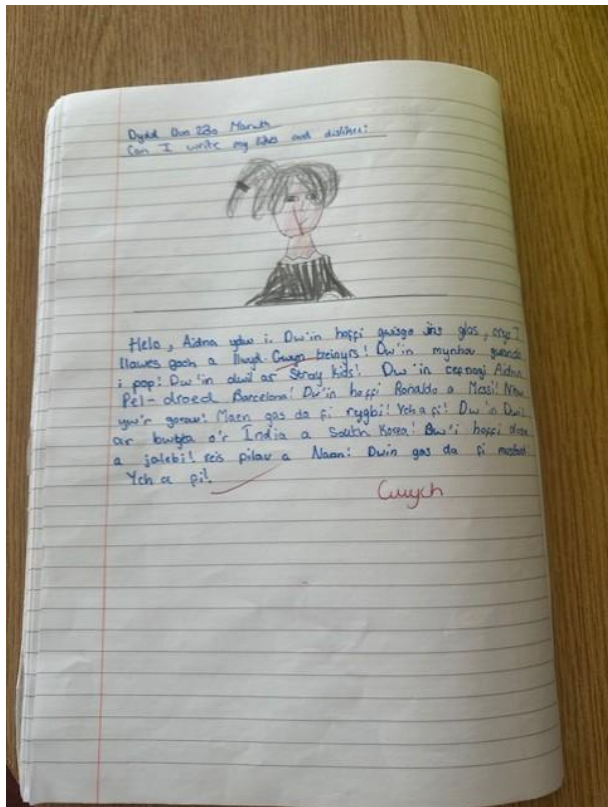 Dydd Llun 23o Mawrth
Can I write my likes and dislikes?
Helo, Aidna ydw i. Dw'in hoffi gwisgo jins glas, crys T
llawes goch a llwyd. Gwyn treinyrs! Dw'in mynhau gwando
i pop! Dw'in dwli ar Stray Kids! Dw'in cefnogi Aidna
Pel-droed Barcelona! Dw'in hoffi Ronaldo a Messi! Nhw
yw'r gorau! Maen gas da fi rygbi! Ych a fi! Dw'n Dwli
ar bwyta o'r India a South Korea! Dw'i hoffi dosa
a jalebi! reis pilau a Naan! Dwin gas da fi mustard
Ych a fi!
Gwych